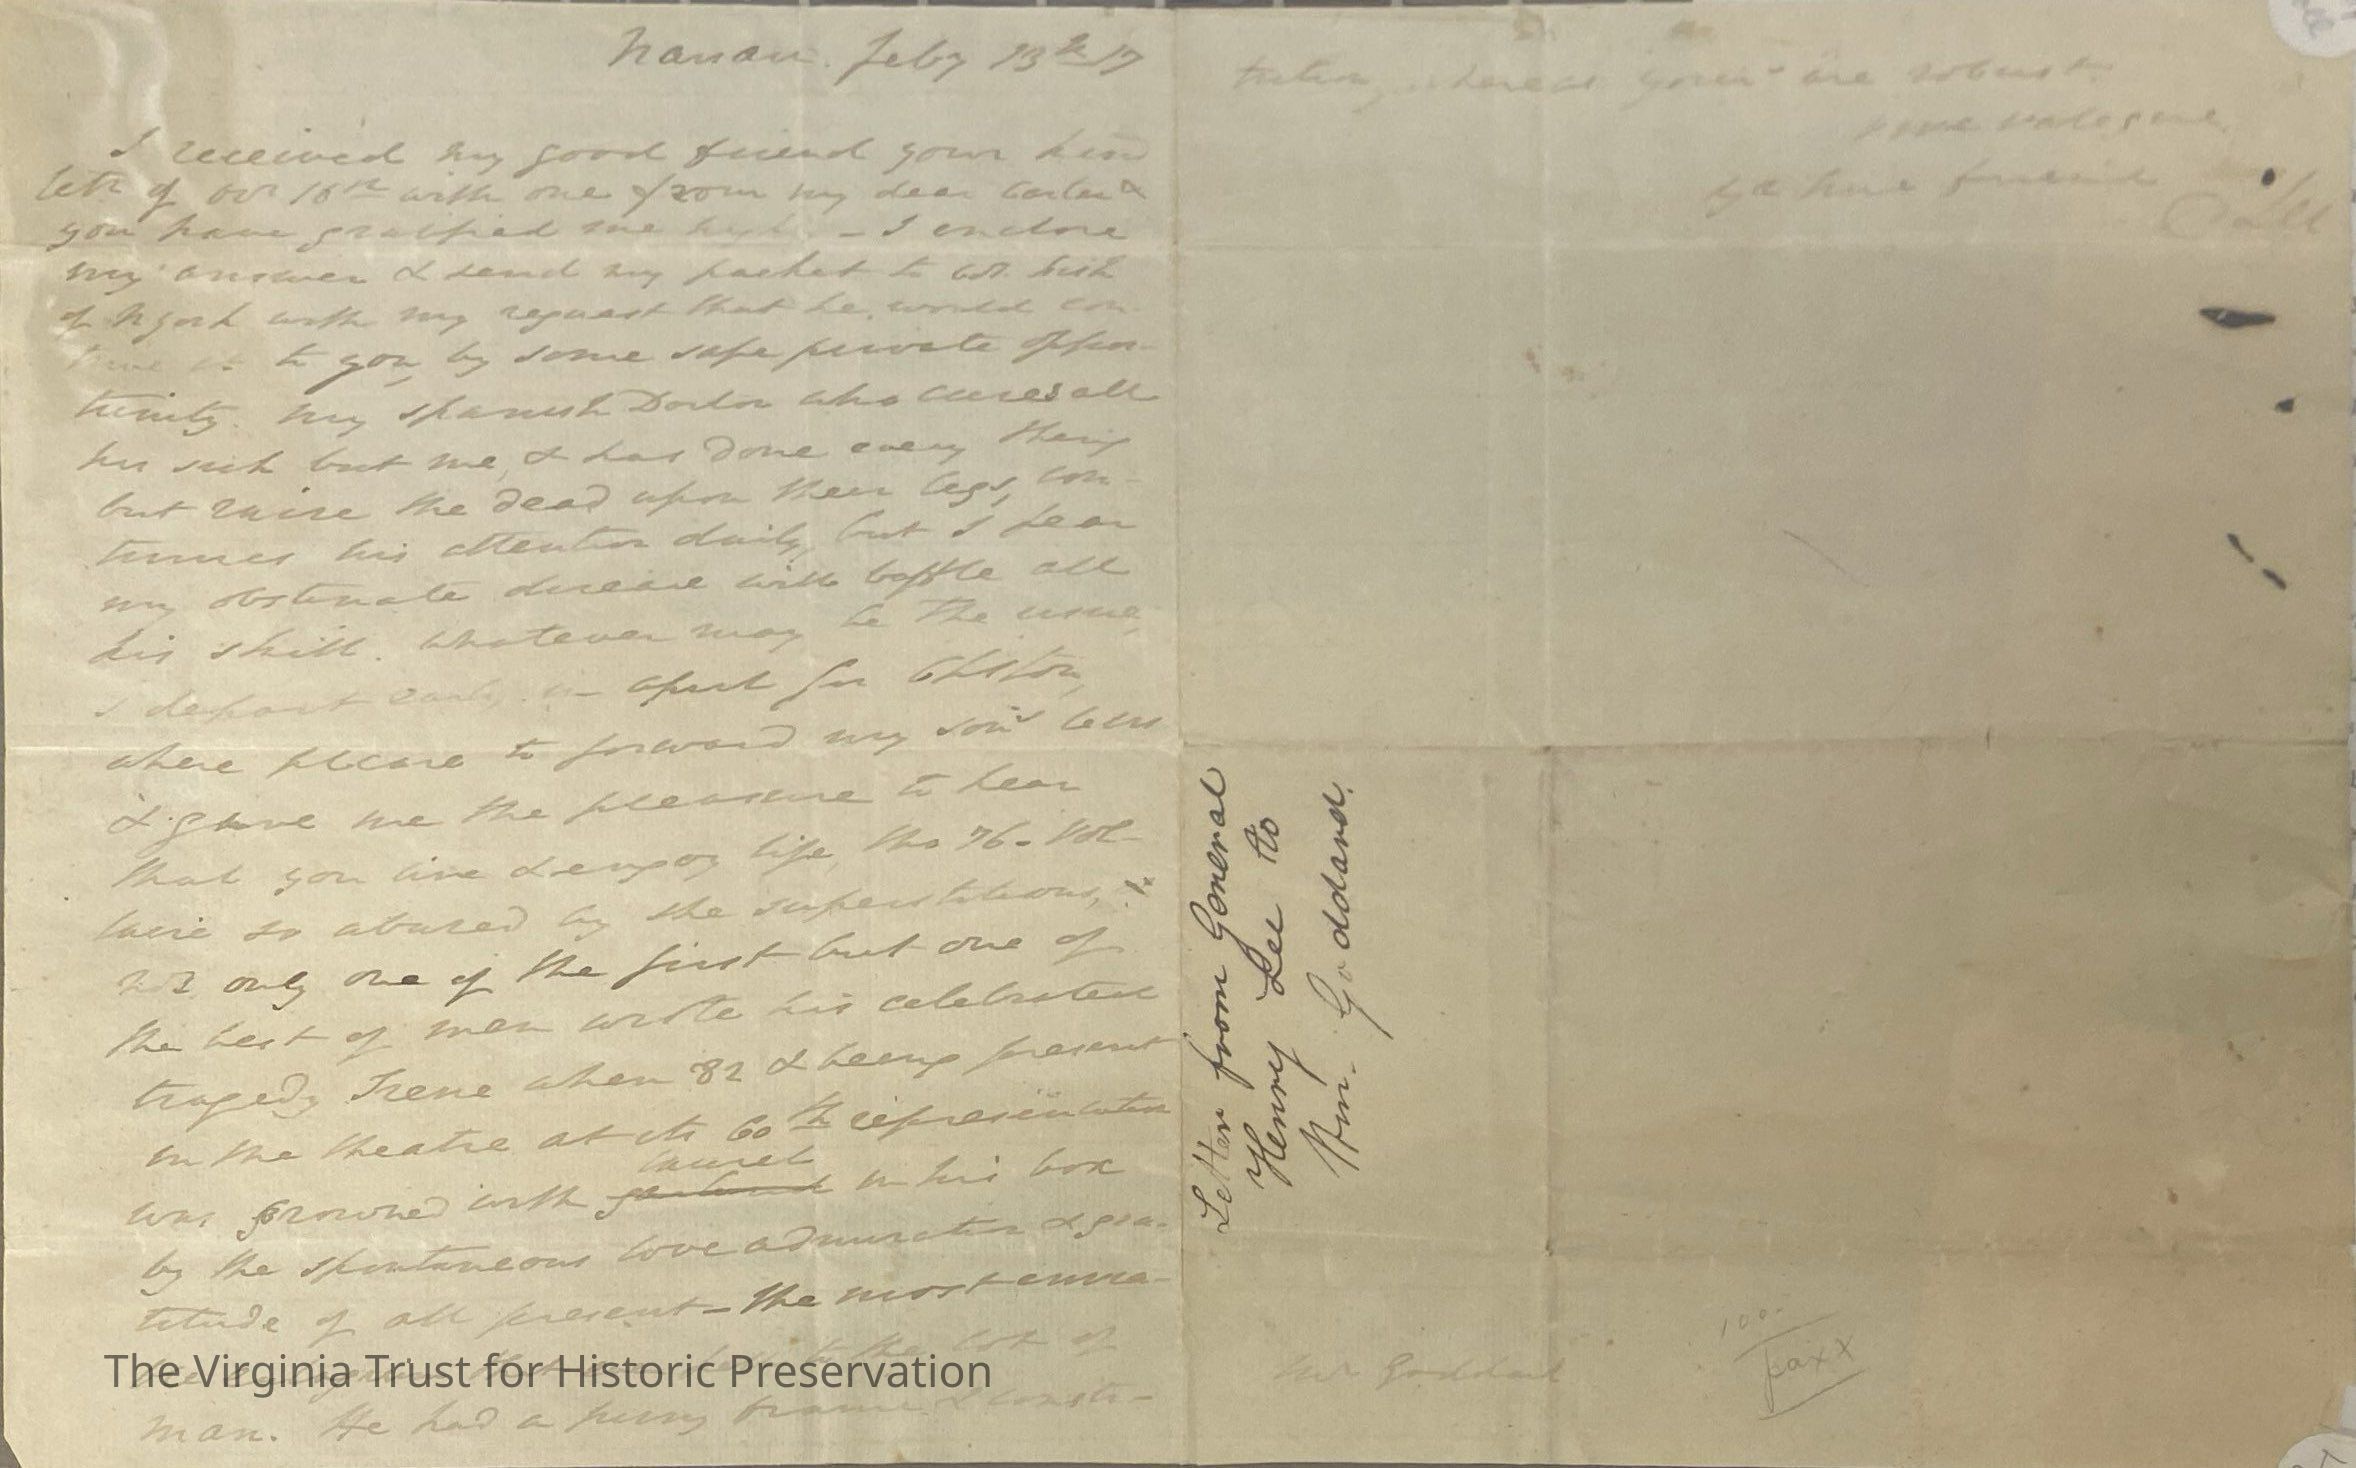 Nassau. Feby 13th 17
I received my good friend your kind
letr of Octr 18th with one from my dear Carter &
you have gratified me - I enclose
my answer & send my packet to Col. Fish
of NYork with my request that he would con
to you by some safe private oppor-
tunity. my Spanish Doctor who cures all
his sick but me, & has done every thing
but raise the dead upon their legs, con-
tinues his attention daily, but I fear
my obstinate disease will baffle all
his skill. whatever may be the issue,
I depart early in april for Chston,
where please to forward my son's letrs
& give me the pleasure to hear
that you live & enjoy life, tho 76. Vol-
taire so abused by the superstitious,
not only one of the first but one of
the best of men wrote his celebrated
tragedy Irene when 82 & being present
in the theatre at its 60th representation
laurel
was crowned with garland in his box
by the spontaneous love admiration & gra-
titude of all present - the most
the lot of
man. He had a puny frame & consti-
tution, whereas yours are robust.
vive valeque
yr true friend
H Lee
Letter from General
Henry Lee to
Wm. Goddard.
Mr Goddard
100.
paxx
The Virginia Trust for Historic Preservation